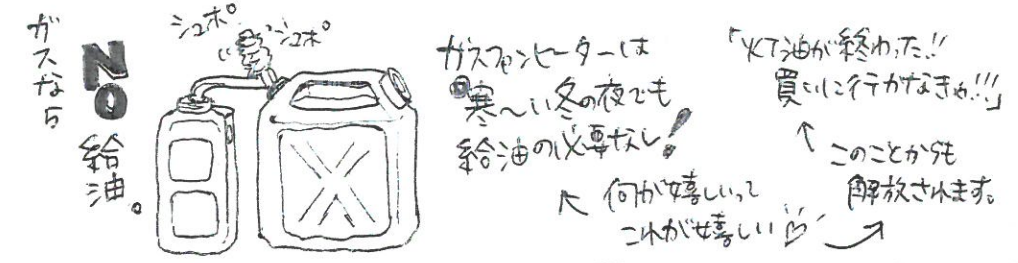 ガスなら
NO給油。
シュポ。
シュポ。
ガスファンヒーターは
寒〜い冬の夜でも
給油の必要なし!
何が嬉しいって
これが嬉しい
「灯油が終わった!!
買いに行かなきゃ!!!」
このことからも
解放されます。